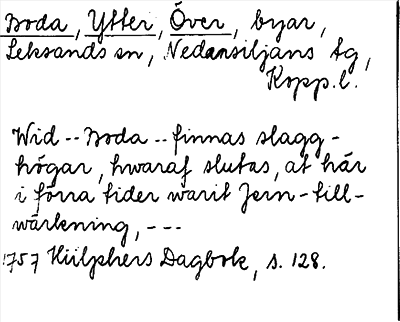 Boda, Ytter, Över, byar,
Leksands sn, Nedansiljans tg,
Kopp.l.
Wid -- Boda -- finnas slagg-
högar, hwaraf slutas, at här
i förra tider warit Jern-till-
wärkning, ---
1757 Hülphers Dagbok, s. 128.